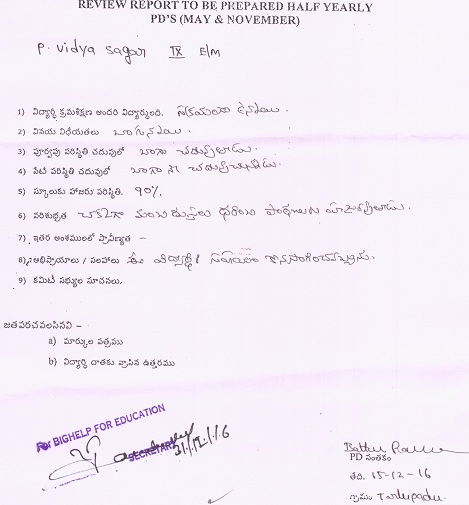 REVIEW REPORT TO BE PREPARED HALF YEARLY
PD'S (MAY & NOVEMBER)
P. Vidya Sagar IX E/M
1) విద్యార్థి క్రమశిక్షణ అందరి విద్యార్థులంది.
2) వినయ విధేయతలు బాగున్నాయి.
3) పూర్వపు పరిస్థితి చదువులో బాగా చదువుతాడు.
4) నేటి పరిస్థితి చదువులో బాగానే చదువుచున్నాడు.
5) స్కూలుకు హాజరు పరిస్థితి. 90%
6) పరిశుభ్రత
7) ఇతర అంశములలో ప్రావీణ్యత –
8) అభిప్రాయాలు / సలహాలు ఈ విద్యార్థికి
9) కమిటీ సభ్యుల సూచనలు.
జతపరచవలసినవి –
a) మార్కుల పత్రము
b) విద్యార్థి దాతకు వ్రాసిన ఉత్తరము
For BIGHELP FOR EDUCATION
SECRETARY
31/12/16
PD సంతకం
తేది. 15-12-16
గ్రామం Tarlupadu